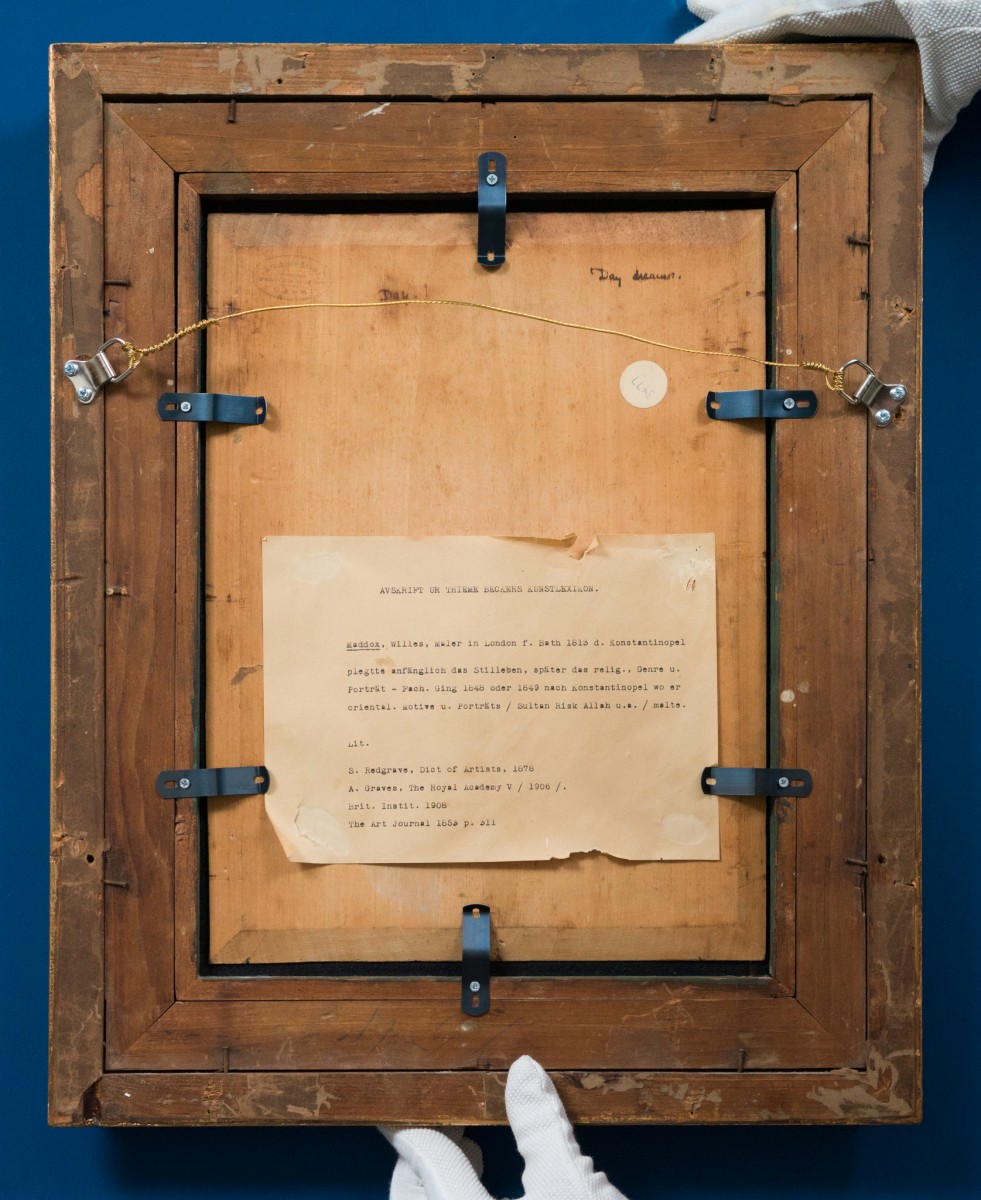 Day dreams.
Day
AVSKRIFT UR THIEME BECKERS KUNSTLEXIKON.
Maddox, Willes, Maler in London f. Bath 1813 d. Konstantinopel
plegtte anfänglich das Stilleben, später das relig., Genre u.
Porträt - Fach. Ging 1848 oder 1849 nach Konstantinopel wo er
oriental. Motive u. Porträts / Sultan Risk Allah u.a. / malte.
Lit.
S. Redgrave, Dict of Artists, 1878
A. Graves, The Royal Academy V / 1906 /.
Brit. Instit. 1908
The Art Journal 1853 p. 311